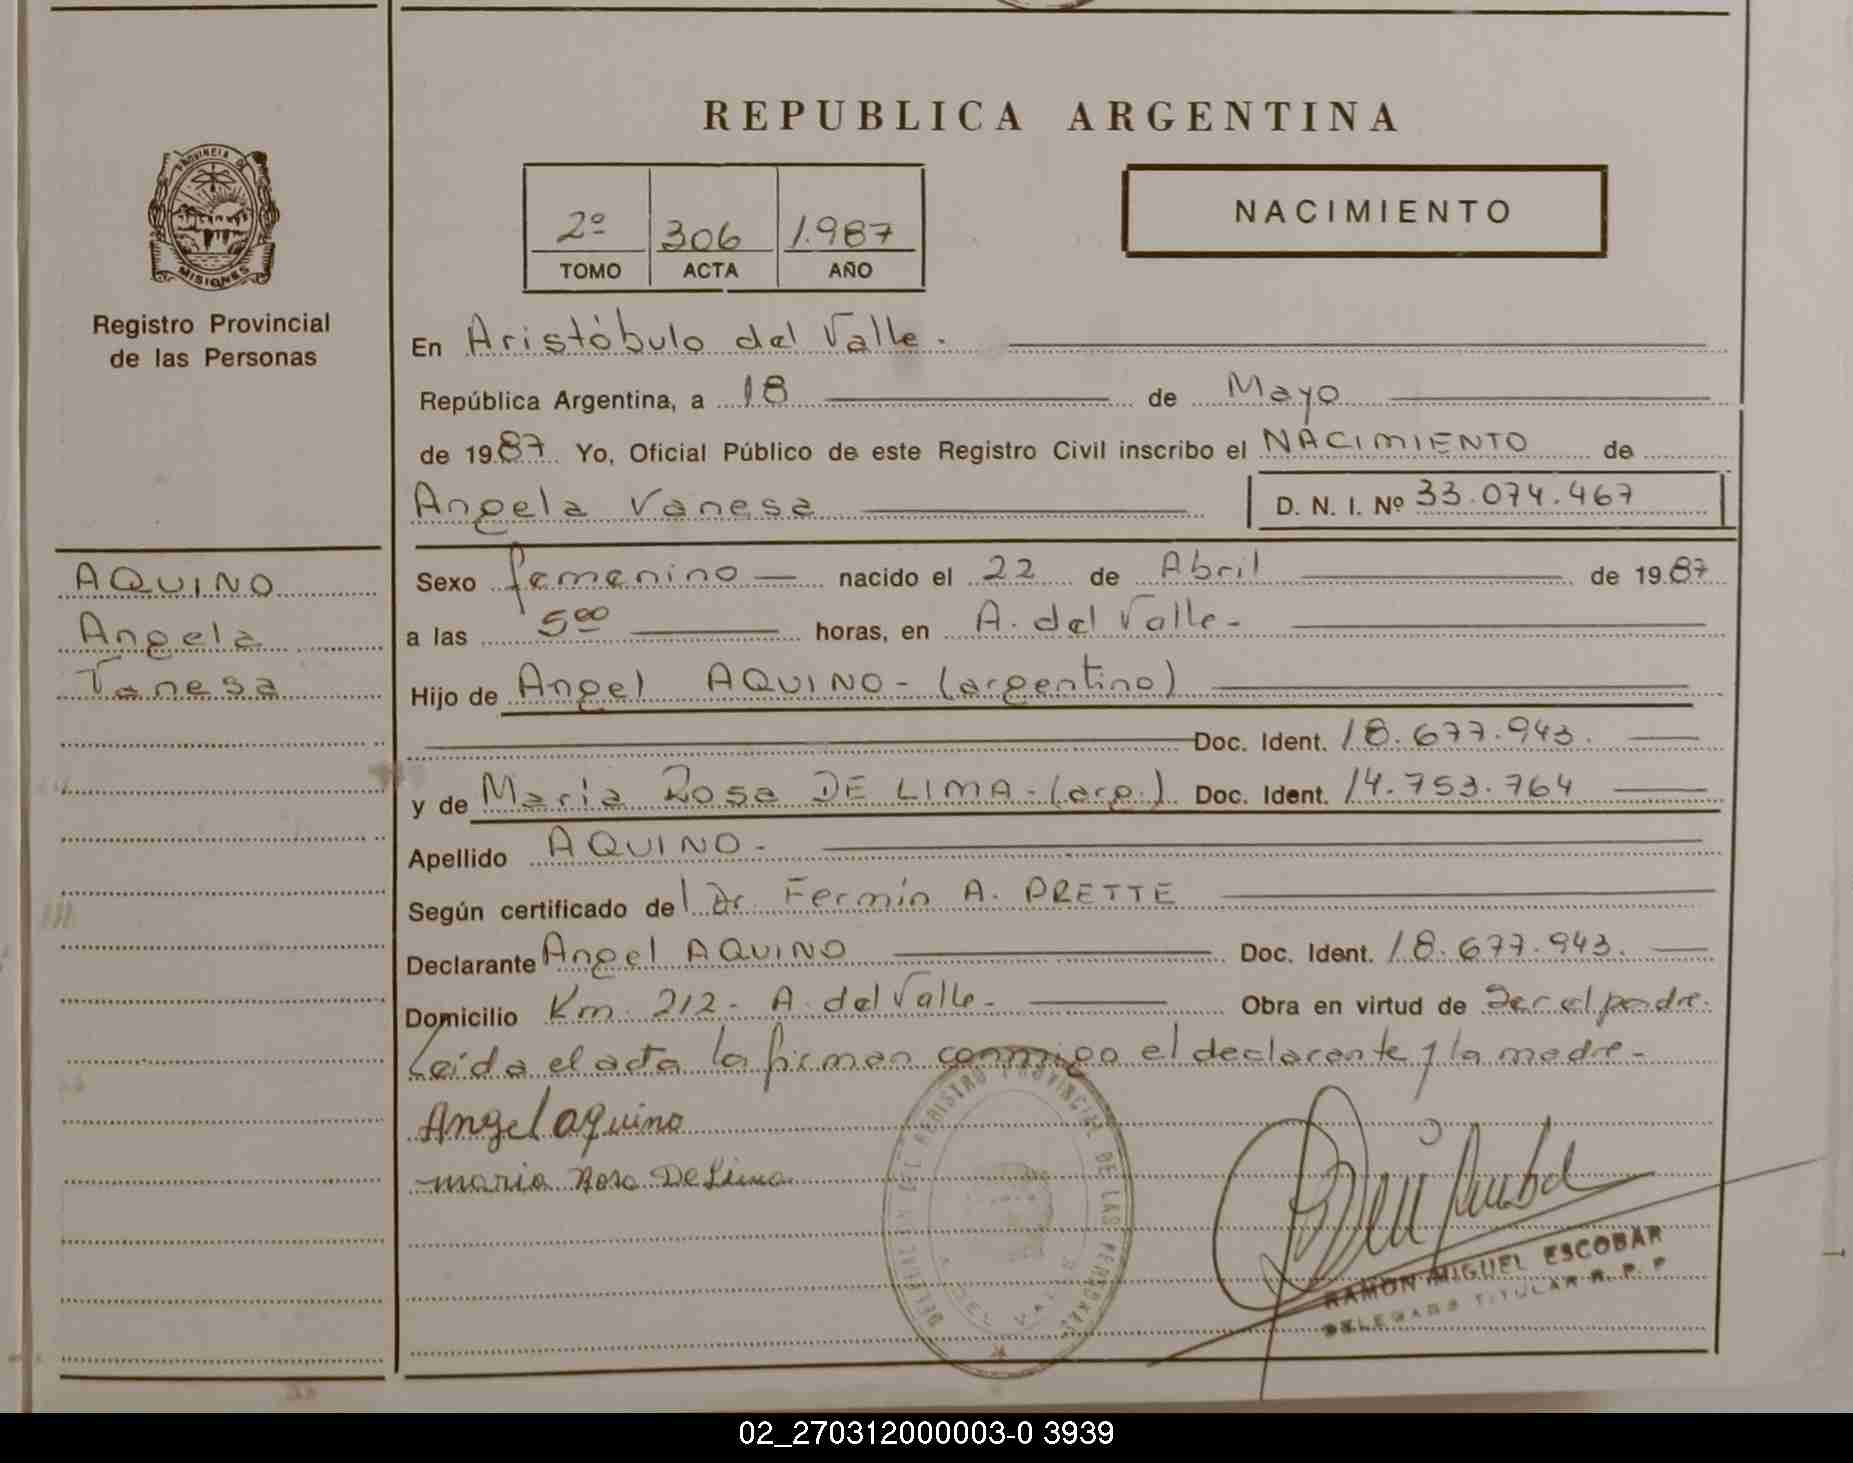 REPUBLICA ARGENTINA
PROVINCIA DE
MISIONES
Registro Provincial
de las Personas
2º 306 1.987
TOMO ACTA AÑO
NACIMIENTO
En Aristóbulo del Valle.
República Argentina, a 18 de Mayo
de 1987 Yo, Oficial Público de este Registro Civil inscribo el NACIMIENTO de
Angela Vanesa D. N. I. Nº 33.074.467
AQUINO
Angela
Vanesa
Sexo femenino nacido el 22 de Abril de 1987
a las 5⁰⁰ horas, en A. del Valle-
Hijo de Angel AQUINO - (argentino)
Doc. Ident. 18.677.943.
y de Maria Rosa DE LIMA - (arg.) Doc. Ident. 14.753.764
Apellido AQUINO.-
Según certificado del Dr. Fermín A. PRETTE
Declarante Angel AQUINO Doc. Ident. 18.677.943.
Domicilio Km. 212 - A. del Valle- Obra en virtud de Ser el padre.
Leída el acta la firman conmigo el declarante y la madre-
Angel aquino
maria Rosa De Lima
REGISTRO PROVINCIAL DE LAS PERSONAS
RAMON MIGUEL ESCOBAR
DELEGADO TITULAR R. P. P
02_270312000003-0 3939